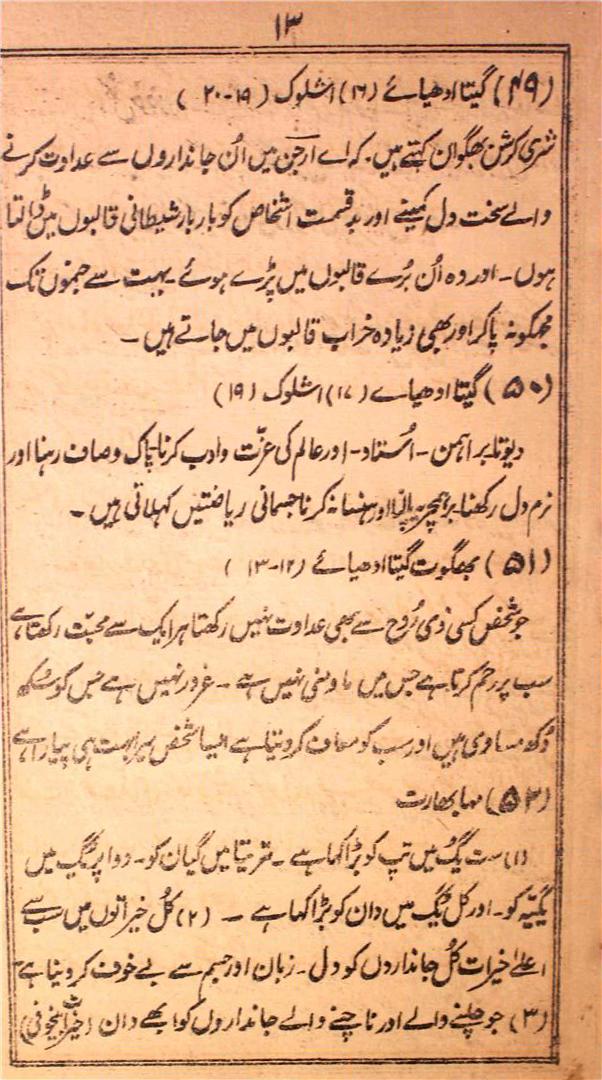 ۱۳
(۴۹) گیتا ادھیائے (۱۶) اشلوک (۱۹-۲۰)
شری کرشن بھگوان کہتے ہیں۔ کہ اے ارجن میں اُن جانداروں سے عداوت کرنے
والے سخت دل کمینے اور بدقسمت اشخاص کو باربار شیطانی قالبوں میں ڈالتا
ہوں۔ اور وہ اُن بُرے قالبوں میں پڑے ہوئے بہت سے جنموں تک
مجھکو نہ پاکر اور بھی زیادہ خراب قالبوں میں جاتے ہیں۔
(۵۰) گیتا ادھیائے (۱۷) اشلوک (۱۹)
دیوتا براہمن۔ اُستاد۔ اور عالم کی عزّت وادب کرنا پاک وصاف رہنا اور
نرم دل رکھنا برہمچریہ پالنا اور ہنسا نہ کرنا جسمانی ریاضتیں کہلاتی ہیں۔
(۵۱) بھگوت گیتا ادھیائے (۱۲-۱۳)
جو شخص کسی ذی رُوح سے بھی عداوت نہیں رکھتا ہر ایک سے محبّت رکھتا ہے
سب پر رحم کرتا ہے جس میں ماومنی نہیں ہے۔ غرور نہیں ہے جس کو سُکھ
دُکھ مساوی ہیں اور سب کو معاف کر دیتا ہے ایسا شخص میرا بہت ہی پیارا ہے
(۵۲) مہابھارت
(۱) ست یُگ میں تپ کو بڑا کہا ہے۔ تریتا میں گیان کو۔ دواپر یُگ میں
یگیہ کو۔ اور کل یُگ میں دان کو بڑا کہا ہے۔ (۲) کُل خیراتوں میں سب سے
اعلےٰ خیرات کُل جانداروں کو دل۔ زبان اور جسم سے بے خوف کر دینا ہے
(۳) جو چلنے والے اور نا چلنے والے جانداروں کو ابھے دان (خیرات بیخوفی)